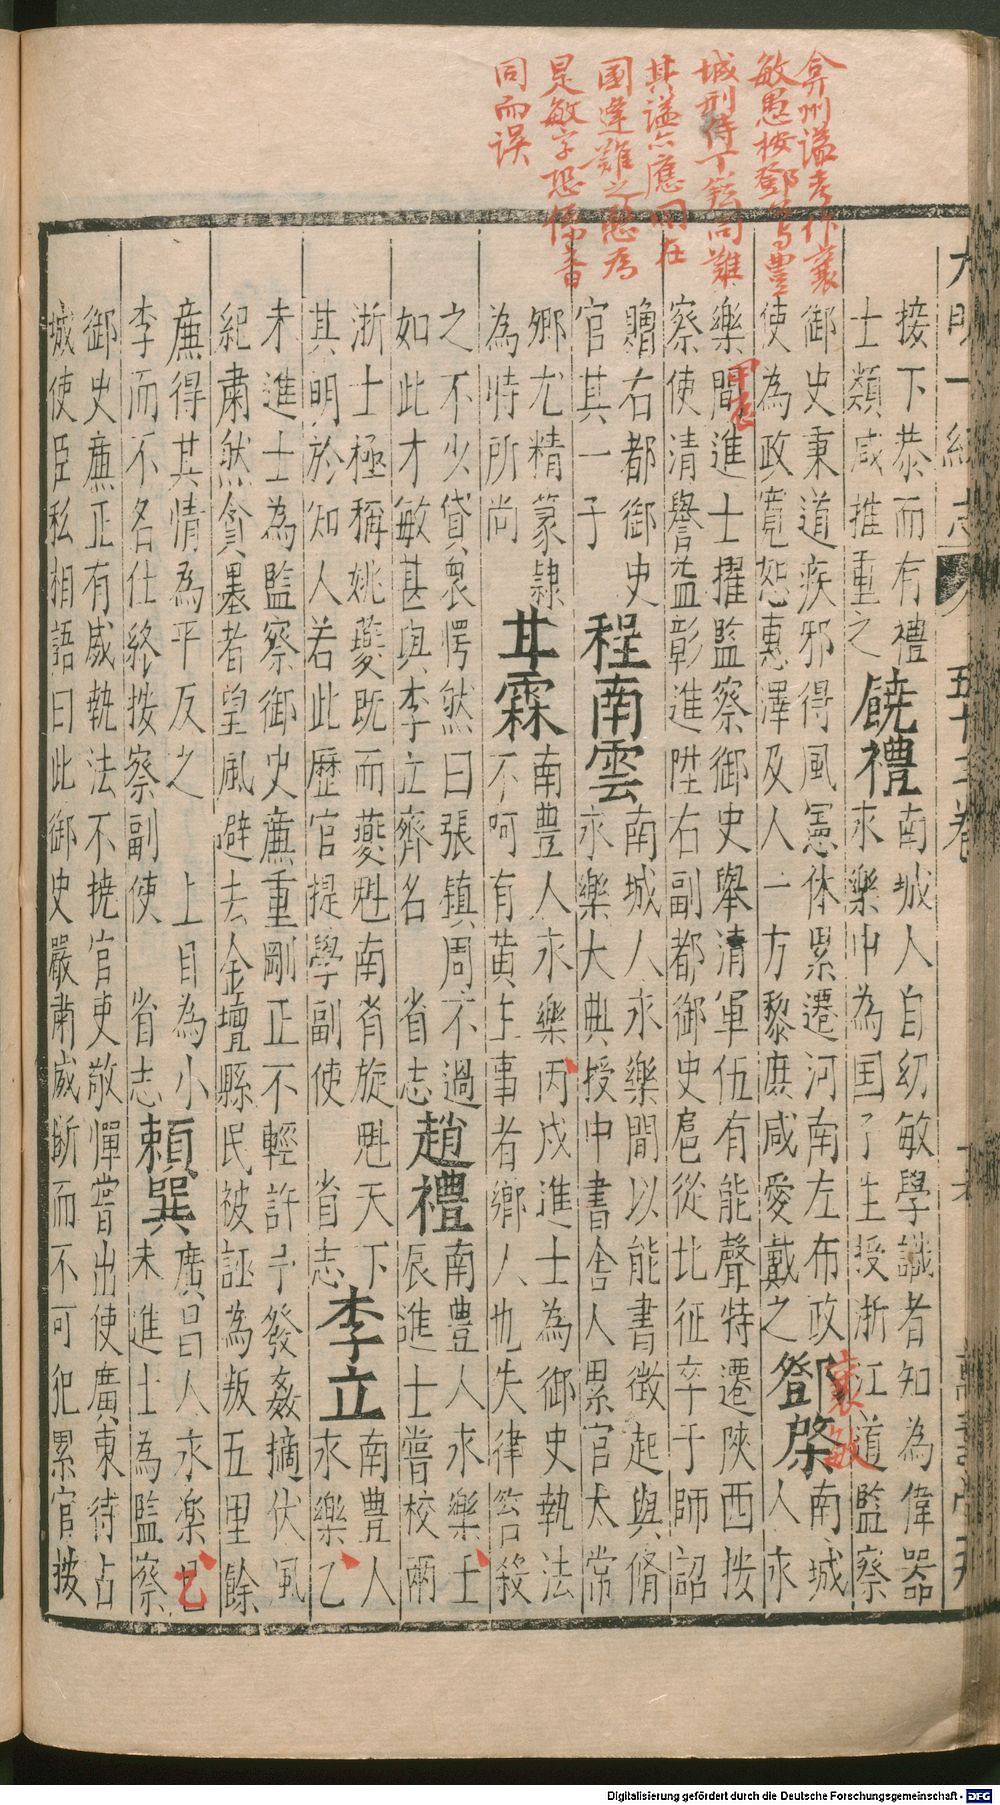 弇州謚考作襄
敏愚按鄧公與豐
城刑侍丁鉉同難
其謚亦應同在
國逢難之愍為
是敏字恐係音
同而误
大明一統志 五十三卷 萬壽堂刊
接下恭而有禮
士類咸推重之
饒禮
南城人自幼敏學識者知為偉器
永樂中為国子生授浙江道監察
御史秉道疾邪得風憲体累遷河南左布政
使為政寬恕惠澤及人一方黎庶咸愛戴之
鄧棨
襄敏
南城
人永
樂間進士擢監察御史舉清軍伍有能聲特遷陝西按
甲辰
察使清譽益彰進陞右副都御史扈從北征卒于師詔
贈右都御史
官其一子
程南雲
南城人永樂間以能書徵起與脩
永樂大典授中書舍人累官太常
卿尤精篆隸
為時所尚
甘霖
南豐人永樂丙戌進士為御史執法
不呵有黃主事者鄉人也失律笞殺
之不少貸裒愕然曰張鎮周不過
如此才敏甚與李立齊名 省志
趙禮
南豐人永樂壬
辰進士嘗校兩
浙士極稱姚夔既而夔魁南省旋魁天下
其明於知人若此歷官提學副使 省志
李立
南豐人
永樂乙
未進士為監察御史廉重剛正不輕許予發姦摘伏風
紀肅然貪墨者望風避去金壇縣民被誣為叛五里餘
廉得其情為平反之 上目為小
李而不名仕終按察副使 省志
賴巽
廣昌人永樂己
乙
未進士為監察
御史廉正有威執法不撓官吏敬憚嘗出使廣東待占
城使臣私相語曰此御史嚴肅威斷而不可犯累官按
Digitalisierung gefördert durch die Deutsche Forschungsgemeinschaft - DFG